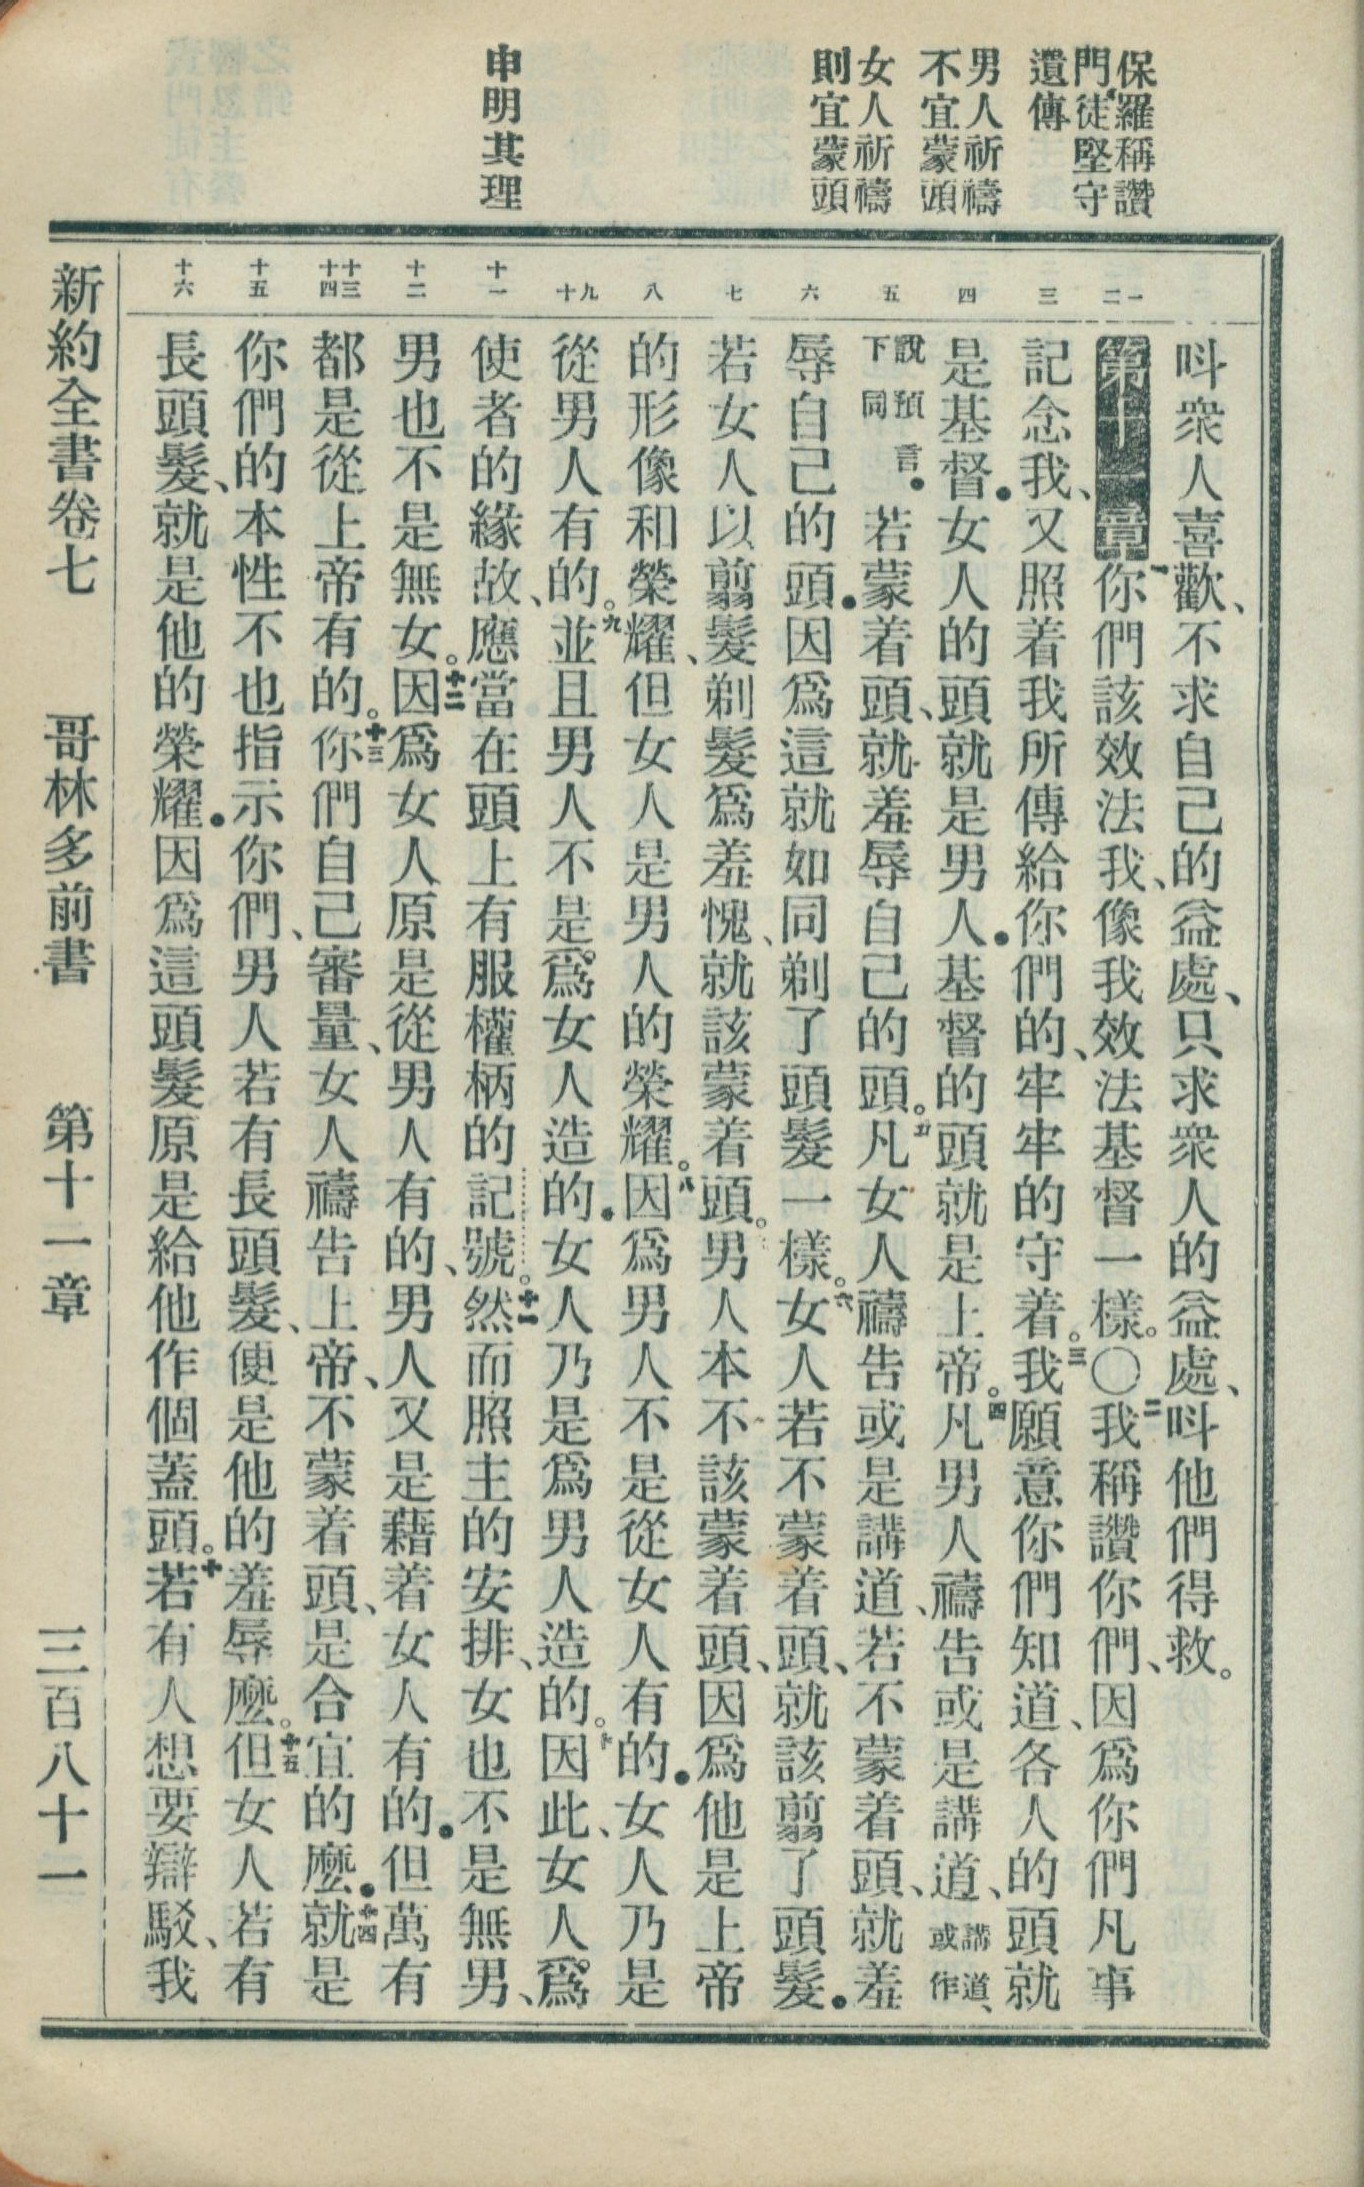 保羅稱讚
門徒堅守
遺傳
男人祈禱
不宜蒙頭
女人祈禱
則宜蒙頭
申明其理
一
二
三
四
五
六
七
八
九
十
十一
十二
十三
十四
十五
十六
呌衆人喜歡、不求自己的益處、只求衆人的益處、呌他們得救。
第十一章一你們該效法我、像我效法基督一樣。〇二我稱讚你們、因爲你們凡事
記念我、又照着我所傳給你們的、牢牢的守着。三我願意你們知道、各人的頭就
是基督.女人的頭就是男人.基督的頭就是上帝。四凡男人禱告或是講道、講道、或作
說預言.下同若蒙着頭、就羞辱自己的頭。五凡女人禱告或是講道、若不蒙着頭、就羞
辱自己的頭.因爲這就如同剃了頭髮一樣。六女人若不蒙着頭、就該翦了頭髮.
若女人以翦髮剃髮爲羞愧、就該蒙着頭。男人本不該蒙着頭、因爲他是上帝
的形像和榮耀、但女人是男人的榮耀。八因爲男人不是從女人有的.女人乃是
從男人有的。九並且男人不是爲女人造的.女人乃是爲男人造的。十因此、女人爲
使者的緣故、應當在頭上有服權柄的記號。十一然而照主的安排、女也不是無男、
男也不是無女。十二因爲女人原是從男人有的、男人又是藉着女人有的.但萬有
都是從上帝有的。十三你們自己審量、女人禱告上帝、不蒙着頭、是合宜的麽.十四就是
你們的本性不也指示你們、男人若有長頭髮、便是他的羞辱麽。十五但女人若有
長頭髮、就是他的榮耀.因爲這頭髮原是給他作個蓋頭。十若有人想要辯駁、我
新約全書卷七 哥林多前書 第十一章 三百八十一